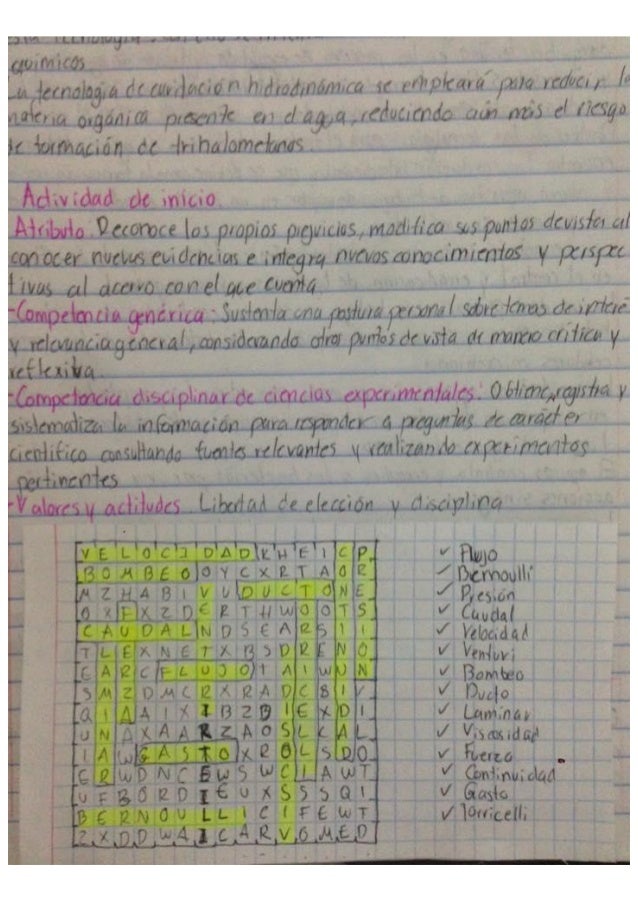 químicos
La tecnología de cavidación hidrodinámica se empleará para reducir la
materia orgánica presente en el agua, reduciendo aún más el riesgo
de formación de trihalometanos.
Actividad de inicio.
Atributo. Reconoce los propios prejuicios, modifica sus puntos de vista al
conocer nuevas evidencias e integra nuevos conocimientos y perspec
tivas al acervo con el que cuenta.
-Competencia genérica: Sustenta una postura personal sobre temas de interé
y relevancia general, considerando otros puntos de vista de manera crítica y
reflexiva.
-Competencia disciplinar de ciencias experimentales: Obtiene, registra y
sistematiza la información para responder a preguntas de carácter
científico consultando fuentes relevantes y realizando experimentos
pertinentes
-Valores y actitudes. Libertad de elección y disciplina
V E L O C I D A D K H E I C P
B O M B E O O Y C X R T A O R
M Z H A B I V U D U C T O N E
O X F X Z D E R T H W O O T S
C A U D A L N D S E A R S I I
T L E X N E T X B S D R E N O
E A R C F L U J O T A I W U N
S M Z D M C R X R A D C S I V
Q I A A I X I B Z B I E X D I
U N A X A A R Z A O S L C A L
I A W G A S T O X R O L S D O
E R W D N C E W S W C I A W T
U F B O R D I E U X S S S Q I
B E R N O U L L I C I F E W T
Z X D D W A I C A R V O M E D
✓ Flujo
✓ Bernoulli
✓ Presión
✓ Caudal
✓ Velocidad
✓ Venturi
✓ Bombeo
✓ Ducto
✓ Laminar
✓ Viscosidad
✓ Fuerza
✓ Continuidad
✓ Gasto
✓ Torricelli